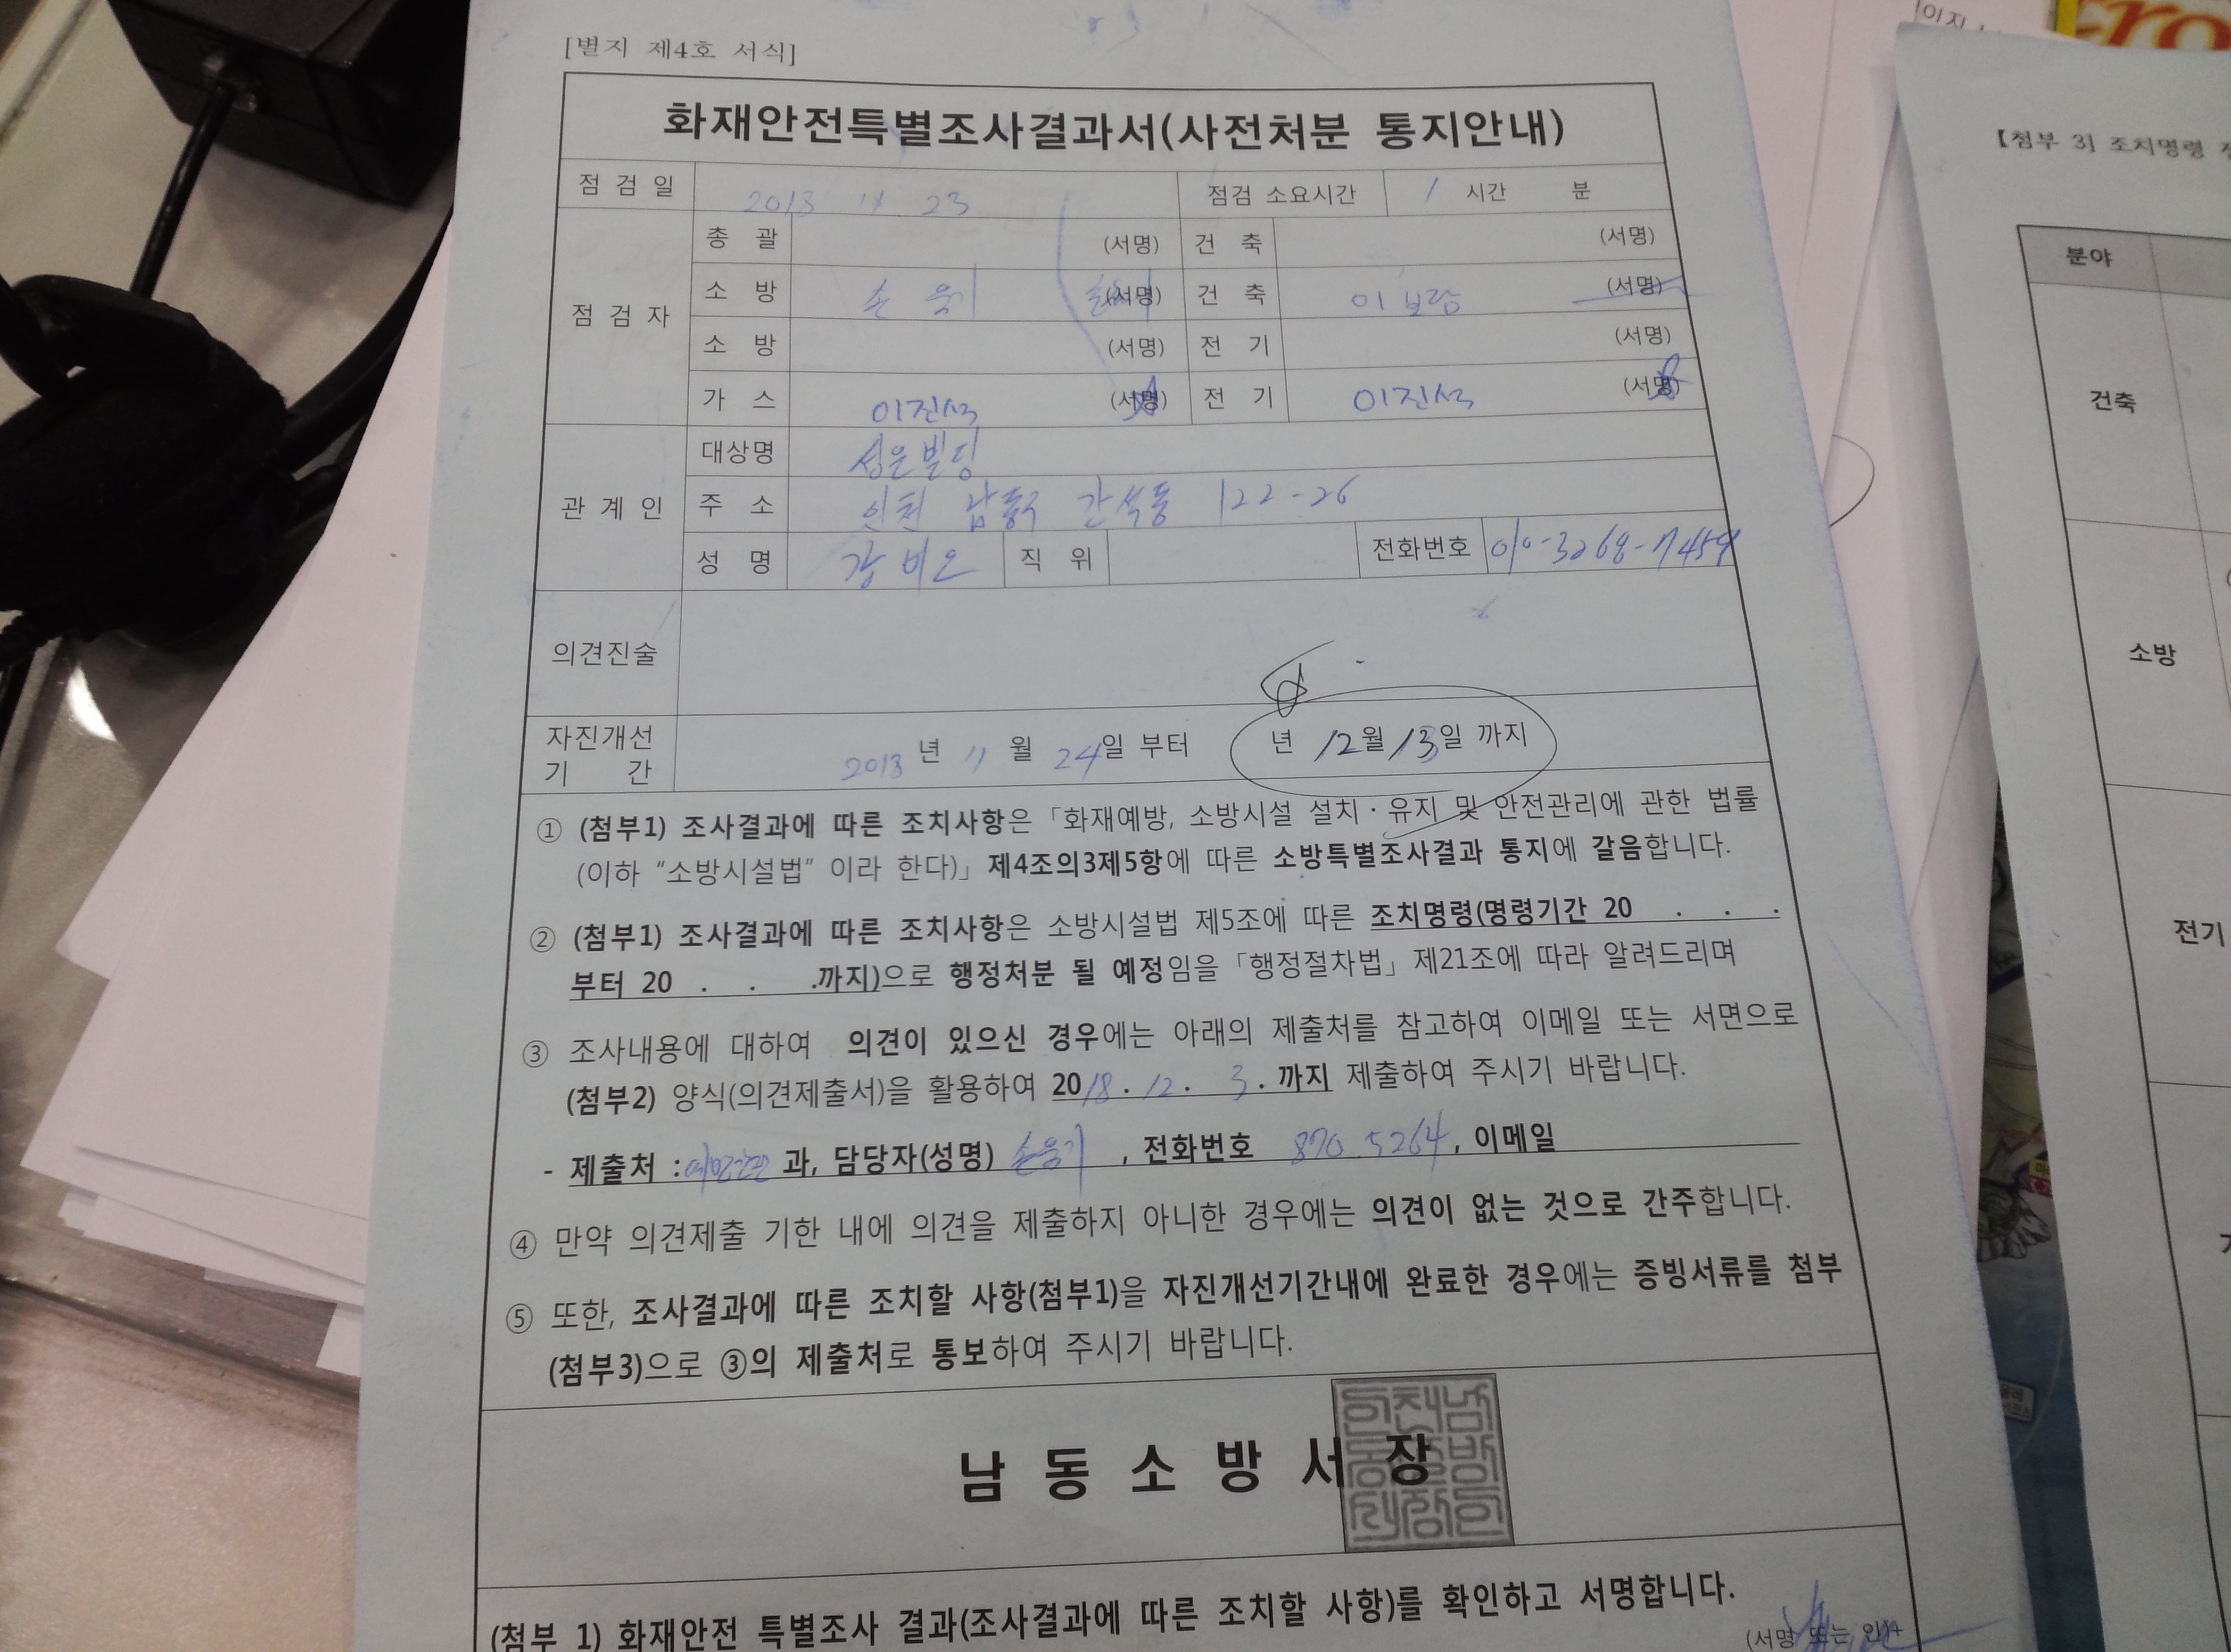 [별지 제4호 서식]
화재안전특별조사결과서(사전처분 통지안내)
점 검 일 2018 11 23 점검 소요시간 1 시간 분
점 검 자
총 괄 (서명) 건 축 (서명)
소 방 손 웅기 (서명) 건 축 이보람 (서명)
소 방 (서명) 전 기 (서명)
가 스 이진석 (서명) 전 기 이진석 (서명)
관 계 인
대상명 성운빌딩
주 소 인천 남동구 간석동 122-26
성 명 직 위 전화번호 010-3268-7459
의견진술
자진개선
기 간
2018 년 11 월 24일 부터 년 12월 13일 까지
① (첨부1) 조사결과에 따른 조치사항은 「화재예방, 소방시설 설치·유지 및 안전관리에 관한 법률
(이하 "소방시설법" 이라 한다)」 제4조의3제5항에 따른 소방특별조사결과 통지에 갈음합니다.
② (첨부1) 조사결과에 따른 조치사항은 소방시설법 제5조에 따른 조치명령(명령기간 20 . . .
부터 20 . . .까지)으로 행정처분 될 예정임을 「행정절차법」 제21조에 따라 알려드리며
③ 조사내용에 대하여 의견이 있으신 경우에는 아래의 제출처를 참고하여 이메일 또는 서면으로
(첨부2) 양식(의견제출서)을 활용하여 2018. 12. 3. 까지 제출하여 주시기 바랍니다.
- 제출처 : 예방안전 과, 담당자(성명) 손웅기 , 전화번호 870.5264, 이메일
④ 만약 의견제출 기한 내에 의견을 제출하지 아니한 경우에는 의견이 없는 것으로 간주합니다.
⑤ 또한, 조사결과에 따른 조치할 사항(첨부1)을 자진개선기간내에 완료한 경우에는 증빙서류를 첨부
(첨부3)으로 ③의 제출처로 통보하여 주시기 바랍니다.
남 동 소 방 서 장
(첨부 1) 화재안전 특별조사 결과(조사결과에 따른 조치할 사항)를 확인하고 서명합니다.
(서명 또는 인)
【첨부 3】 조치명령
분야
건축
소방
전기